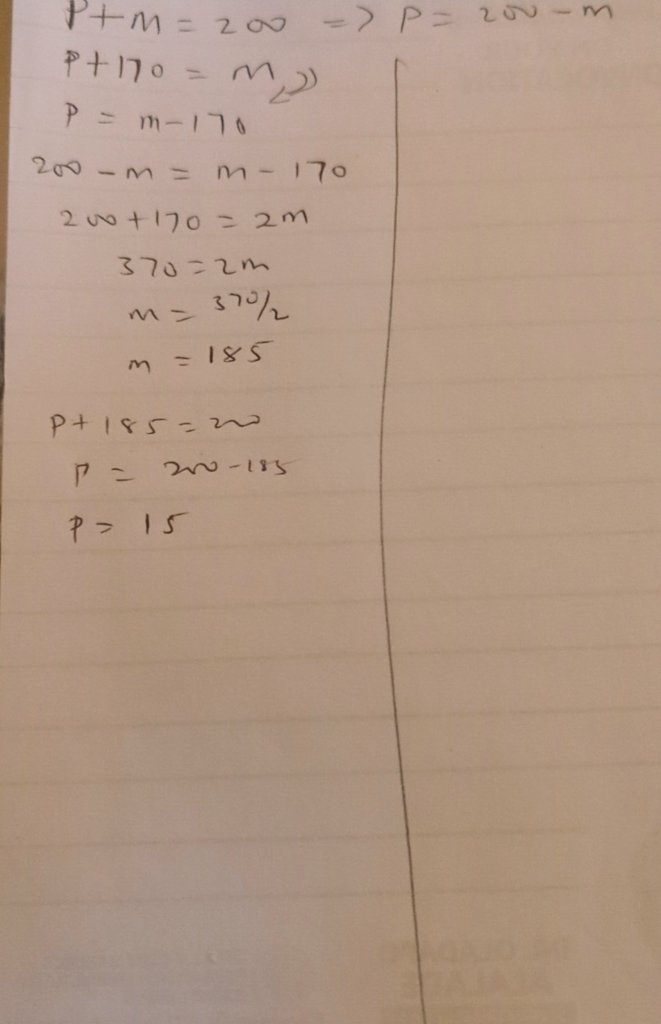 P+m = 200 => P = 200 - m
P+170 = m
P = m-170
200 - m = m - 170
200+170 = 2m
370 = 2m
m = 370/2
m = 185
P+185 = 200
P = 200-185
P = 15